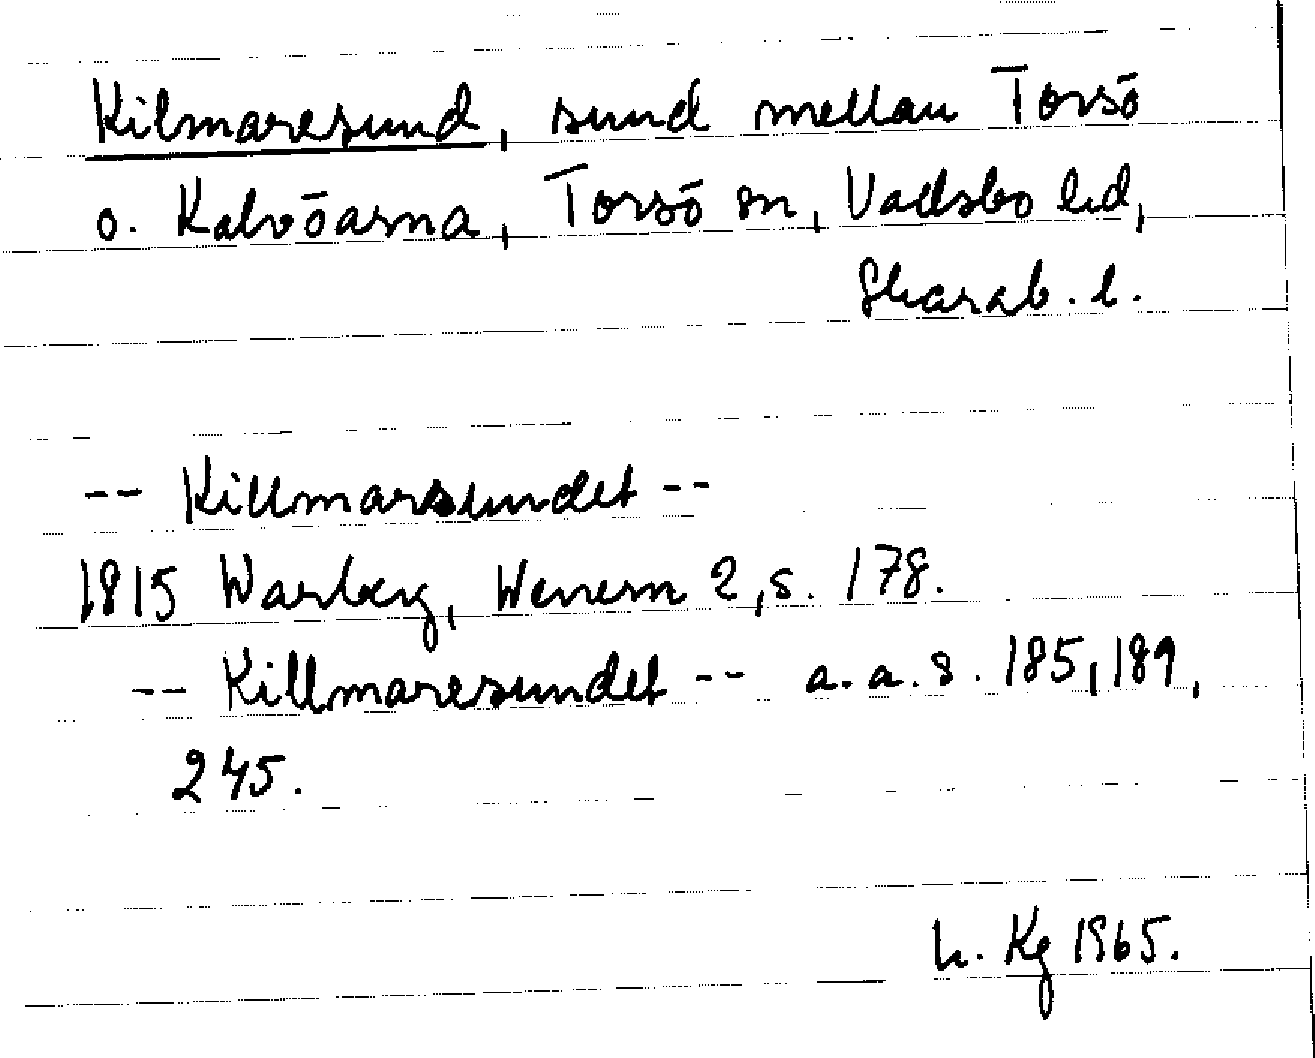 Kilmaresund, sund mellan Torsö
o. Kalvöarna, Torsö sn, Vadsbo hd,
Skarab. l.
-- Killmarsundet --
1815 Warberg, Wenern 2, s. 178.
-- Killmaresundet -- a. a. s. 185, 189,
245.
L. Kg 1965.